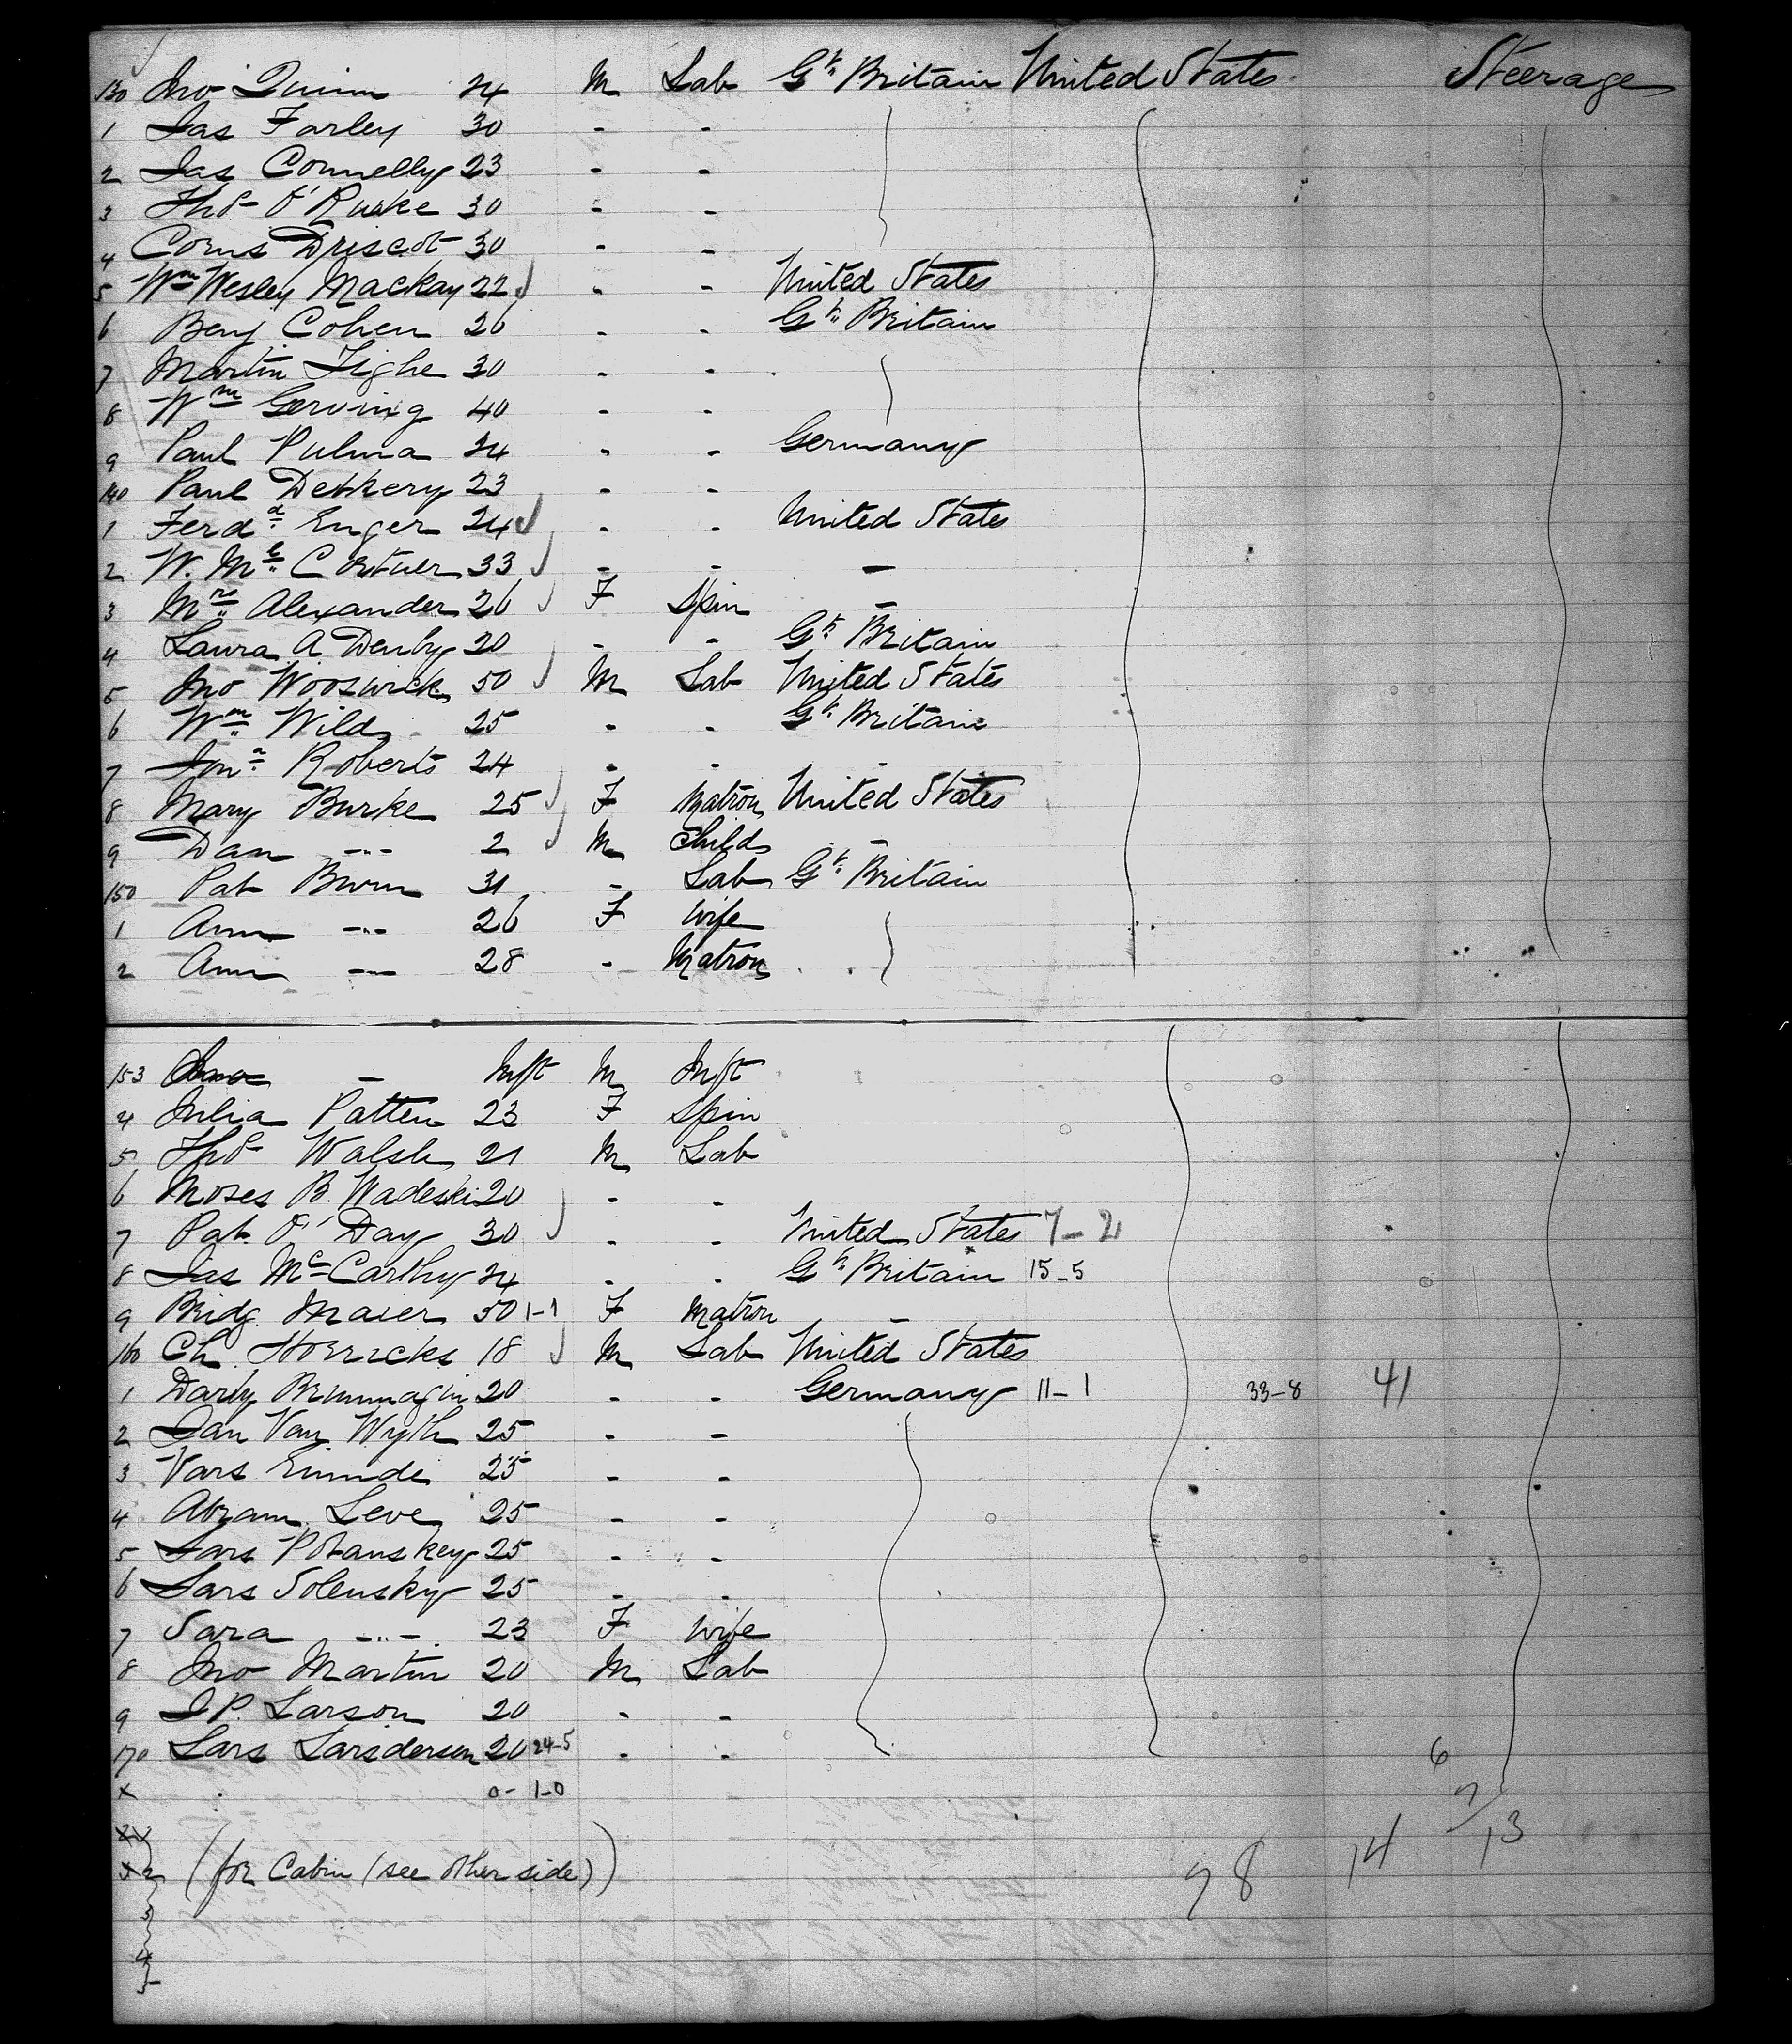 130 Jno Quinn 24 M Lab Gt. Britain United States Steerage
1 Jas Farley 30 - -
2 Jas Connelly 23 - -
3 Thos O'Rurke 30 - -
4 Corns Driscot 30 - -
5 Wm Wesley Mackay 22 - - United States
6 Benj Cohen 26 - - Gt. Britain
7 Martin Tighe 30 - -
8 Wm Gerving 40 - -
9 Paul Pulma 24 - - Germany
140 Paul 23 - -
1 Ferd. Enger 24 - - United States
2 W. Mc 33 - - -
3 Mrs Alexander 26 F Spin -
4 Laura A Denby 20 - - Gt. Britain
5 Jno Wooswick 50 M Lab United States
6 Wm Wild 25 - - Gt. Britain
7 Jona. Roberts 24 - - -
8 Mary Burke 25 F Matron United States
9 Dan -"- 2 M Child -
150 Pat 31 - Lab Gt. Britain
1 Ann -"- 26 F Wife
2 Ann -"- 28 - Matron
153 - Inft M Inft
4 Julia Patten 23 F Spin
5 Thos Walsh 21 M Lab
6 Moses B. Wadeski 20 - -
7 Pat. O'Day 30 - - United States 7-2
8 Jas McCarthy 24 - - Gt. Britain 15-5
9 Bridg. Maier 50 1-1 F Matron -
160 Ch. Horricks 18 M Lab United States
1 Darby Brummagin 20 - - Germany 11-1 33-8 41
2 Jan Van Wyth 25 - -
3 Vars 25 - -
4 Abram Leve 25 - -
5 Lars Potanskey 25 - -
6 Lars Solensky 25 - -
7 Sara -"- 23 F Wife
8 Jno Martin 20 M Lab
9 J P. Larson 20 - -
170 Lars Larsdersen 20 24-5 - - 6
x 0- 1-0 7
13
(for Cabin (see other side)) 78 14
3
4
5